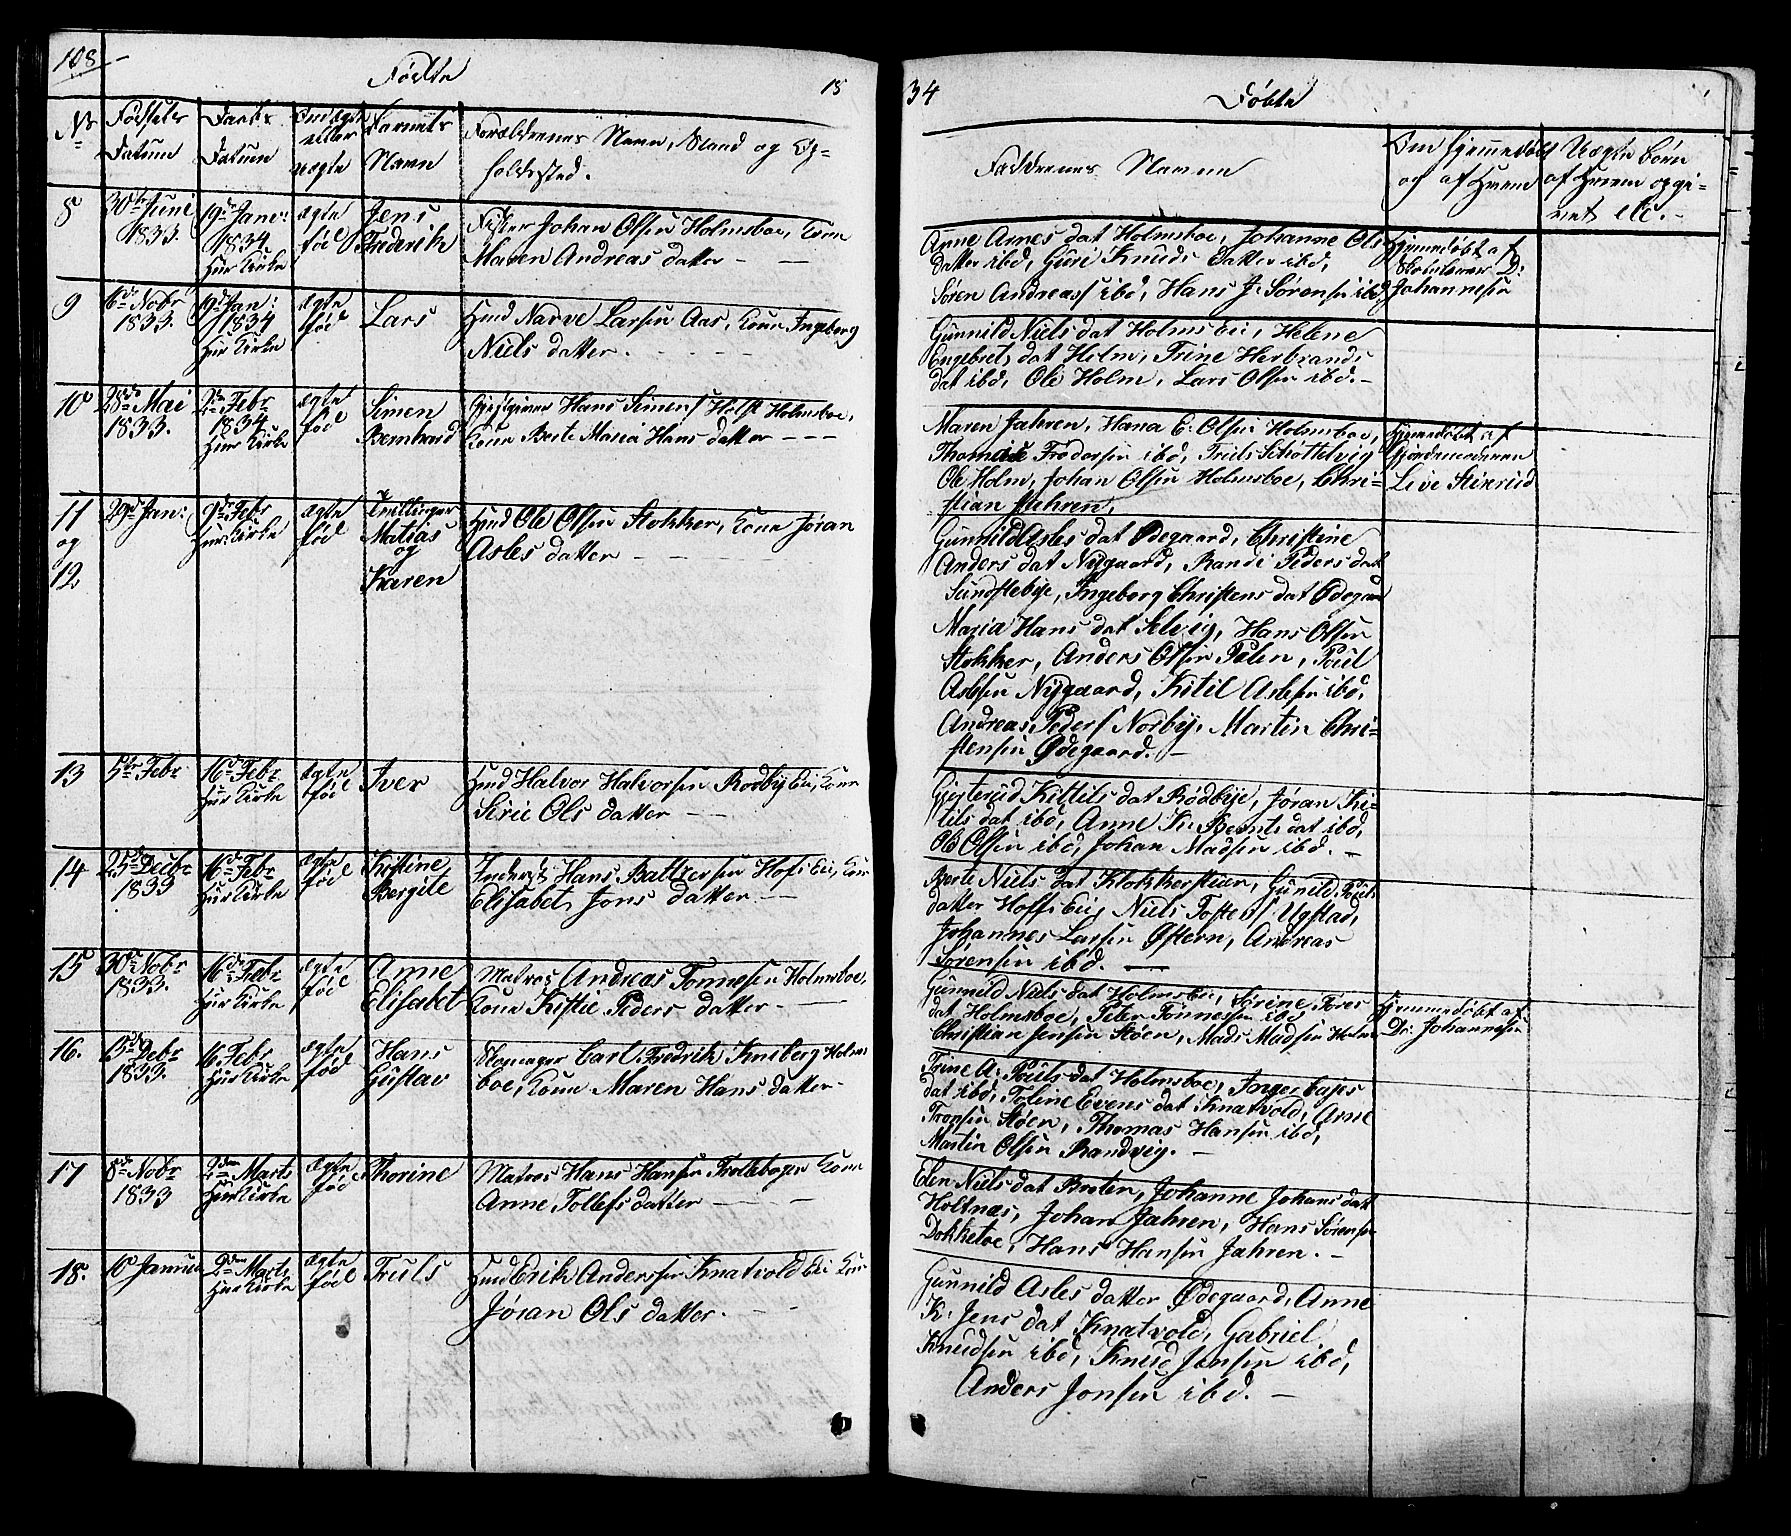 108
Fødte
18
No
Fødsels
Datum
Daabs
Datum
Uægte
eller
ægte
Barnets
Navn
Forældrenes Navn, Stand og Op-
holdssted.
8
30te Juni
1833.
19de Janr:
1834
Hur Kirke
ægte
fød
Jens
Frederik
Johan Olsen Holmsboe, Kone
Maren Andreas datter
9
6de Nobr
1833.
19de Jan:
1834
Hur Kirke
ægte
fød
Lars
Hmd Narve Larsen Aas, Kone Ingeborg
Niels datter.
10
28de Mai
1833.
2den Febr
1834
Hur Kirke
ægte
fød
Simen
Bernhard
Gjestgiver Hans Simens Holst Holmsboe,
Kone Berte Maria Hans datter
11
og
12
29de Jan:
Febr
Hur Kirke
ægte
fød
Tvillinger
Matias
og
Karen
Hmd Ole Olsen Stokker, Kone Jøran
Asles datter
13
5te Febr
16de Febr
Hur Kirke
ægte
fød
Iver
Hmd Halvor Halvorsen Rødby Eie, Kone
Sirie Ols datter
14
25de Decbr
1833
16de Febr
Hur Kirke
ægte
fød
Kistine
Bergite
Inderst Hans Baltzersen Hofs Eie, Kone
Elisabet Jons datter
15
30te Nobr
1833.
16de Febr
Hur Kirke
ægte
fød
Anne
Elisabet
Matros Andreas Tønnesen Holmsboe,
Kone Kistie Peders datter
16.
15de Debr
1833.
16 Febr
Hur Kirke
ægte
fød
Hans
Gustav
Skomager Carl Fredrik Kniberg Holms
boe, Kone Maren Hans datter
17
8de Nobr
1833
2den Marts
Hur Kirke
ægte
fød
Thorine
Matros Hans Hansen Trollebogen Kone
Anne Tollefs datter
18.
10 Januar
2den Marts
Hur Kirke
ægte
fød
Truls
Hmd Erik Andersen Knatvold Eie Kone
Jøran Ols datter.
34
Døbte
Faddernes Navne
Om hjemmedøbt
og af hvem
Uægte børn
af hvem opgi-
vet etc.
Anne Arnes dat Holmsboe, Johanne Ols
datter ibd, Guri Knuds datter ibd,
Søren Andreass ibd, Hans J. Sørensen ibd,
Hjemmedøbt af
Skoleholder D:
Johannesen
Gunnild Niels dat Holms Eie, Helene
Engebrets dat Holm, Trine Herbrands
dat ibd, Ole Holm, Lars Olsen ibd.
Maren Jahren, Hana E. Olsen Holmsboe,
Frodorsen ibd, Truls Schøttelvig
Ole Holm, Johan Olsen Holmsboe, Chri-
stian Jahren,
Hjemmedøbt af
Gjordemoderen
Live Steinrud
Gunnild Asles dat Ødegaard, Christine
Anders dat Nygaard, Randi Peders dat
Sundstebye, Ingeborg Christens dat Ødegaard
Maria Hans dat Selvig, Hans Olsen
Stokker, Anders Olsen Palen, Poul
Aslesen Nygaard, Kitil Aslesen ibd,
Andreas Peders Norby, Martin Chri-
stensen Ødegaard.
Gjertrud Kittils dat Rødbye, Jøran Ki-
tils dat ibd, Anne K. Bernts dat ibd,
Ole Olsen ibd, Johan Madsen ibd.
Berte Niels dat Klokkerstuen, Gunild Pouls
datter Hoffs Eie, Niels Tostens Ugstad,
Johannes Larsen Østern, Andreas
Sørensen ibd.
Gunnild Niels dat Holms Eie, Sørine Tores
dat Holmsboe, Peter Tønnesen ibd,
Christian Jensen Støen, Mads Madsen Holm
Hjemmedøbt af
D: Johannesen
Trine A. Pouls dat Holmsboe, Inger Cajes
dat ibd, Toline Evens dat Knatvold, Arne
Tronsen Støen, Thomas Hansen ibd,
Martin Olsen Randvig.
Elen Niels dat Braten, Johanne Johans dat
Holtnæs, Johan Jahren, Hans Sørensen
Dokketoe, Hans Hansen Jahren.
Gunnild Asles datter Ødegaard, Anne
K. Jens dat Knatvold, Gabriel
Knudsen ibd, Knud Jonsen ibd,
Anders Jonsen ibd.